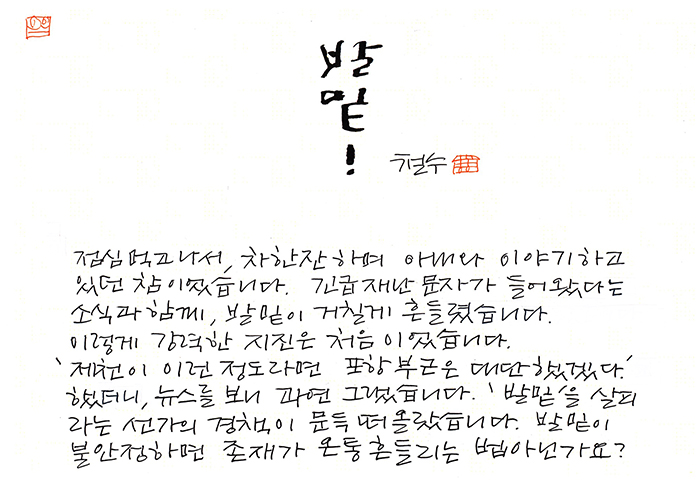 발
밑
!
철수
점심먹고나서, 차한잔하며 아내와 이야기하고
있던 참이었습니다. 긴급재난문자가 들어왔다는
소식과함께, 발밑이 거칠게 흔들렸습니다.
이렇게 강력한 지진은 처음이었습니다.
'제천이 이런 정도라면 포항부근은 대단했겠다.'
했더니, 뉴스를 보니 과연 그랬습니다. '발밑'을 살피
라는 선가의 경책이 문득 떠올랐습니다. 발밑이
불안정하면 존재가 온통흔들리는 법아닌가요?